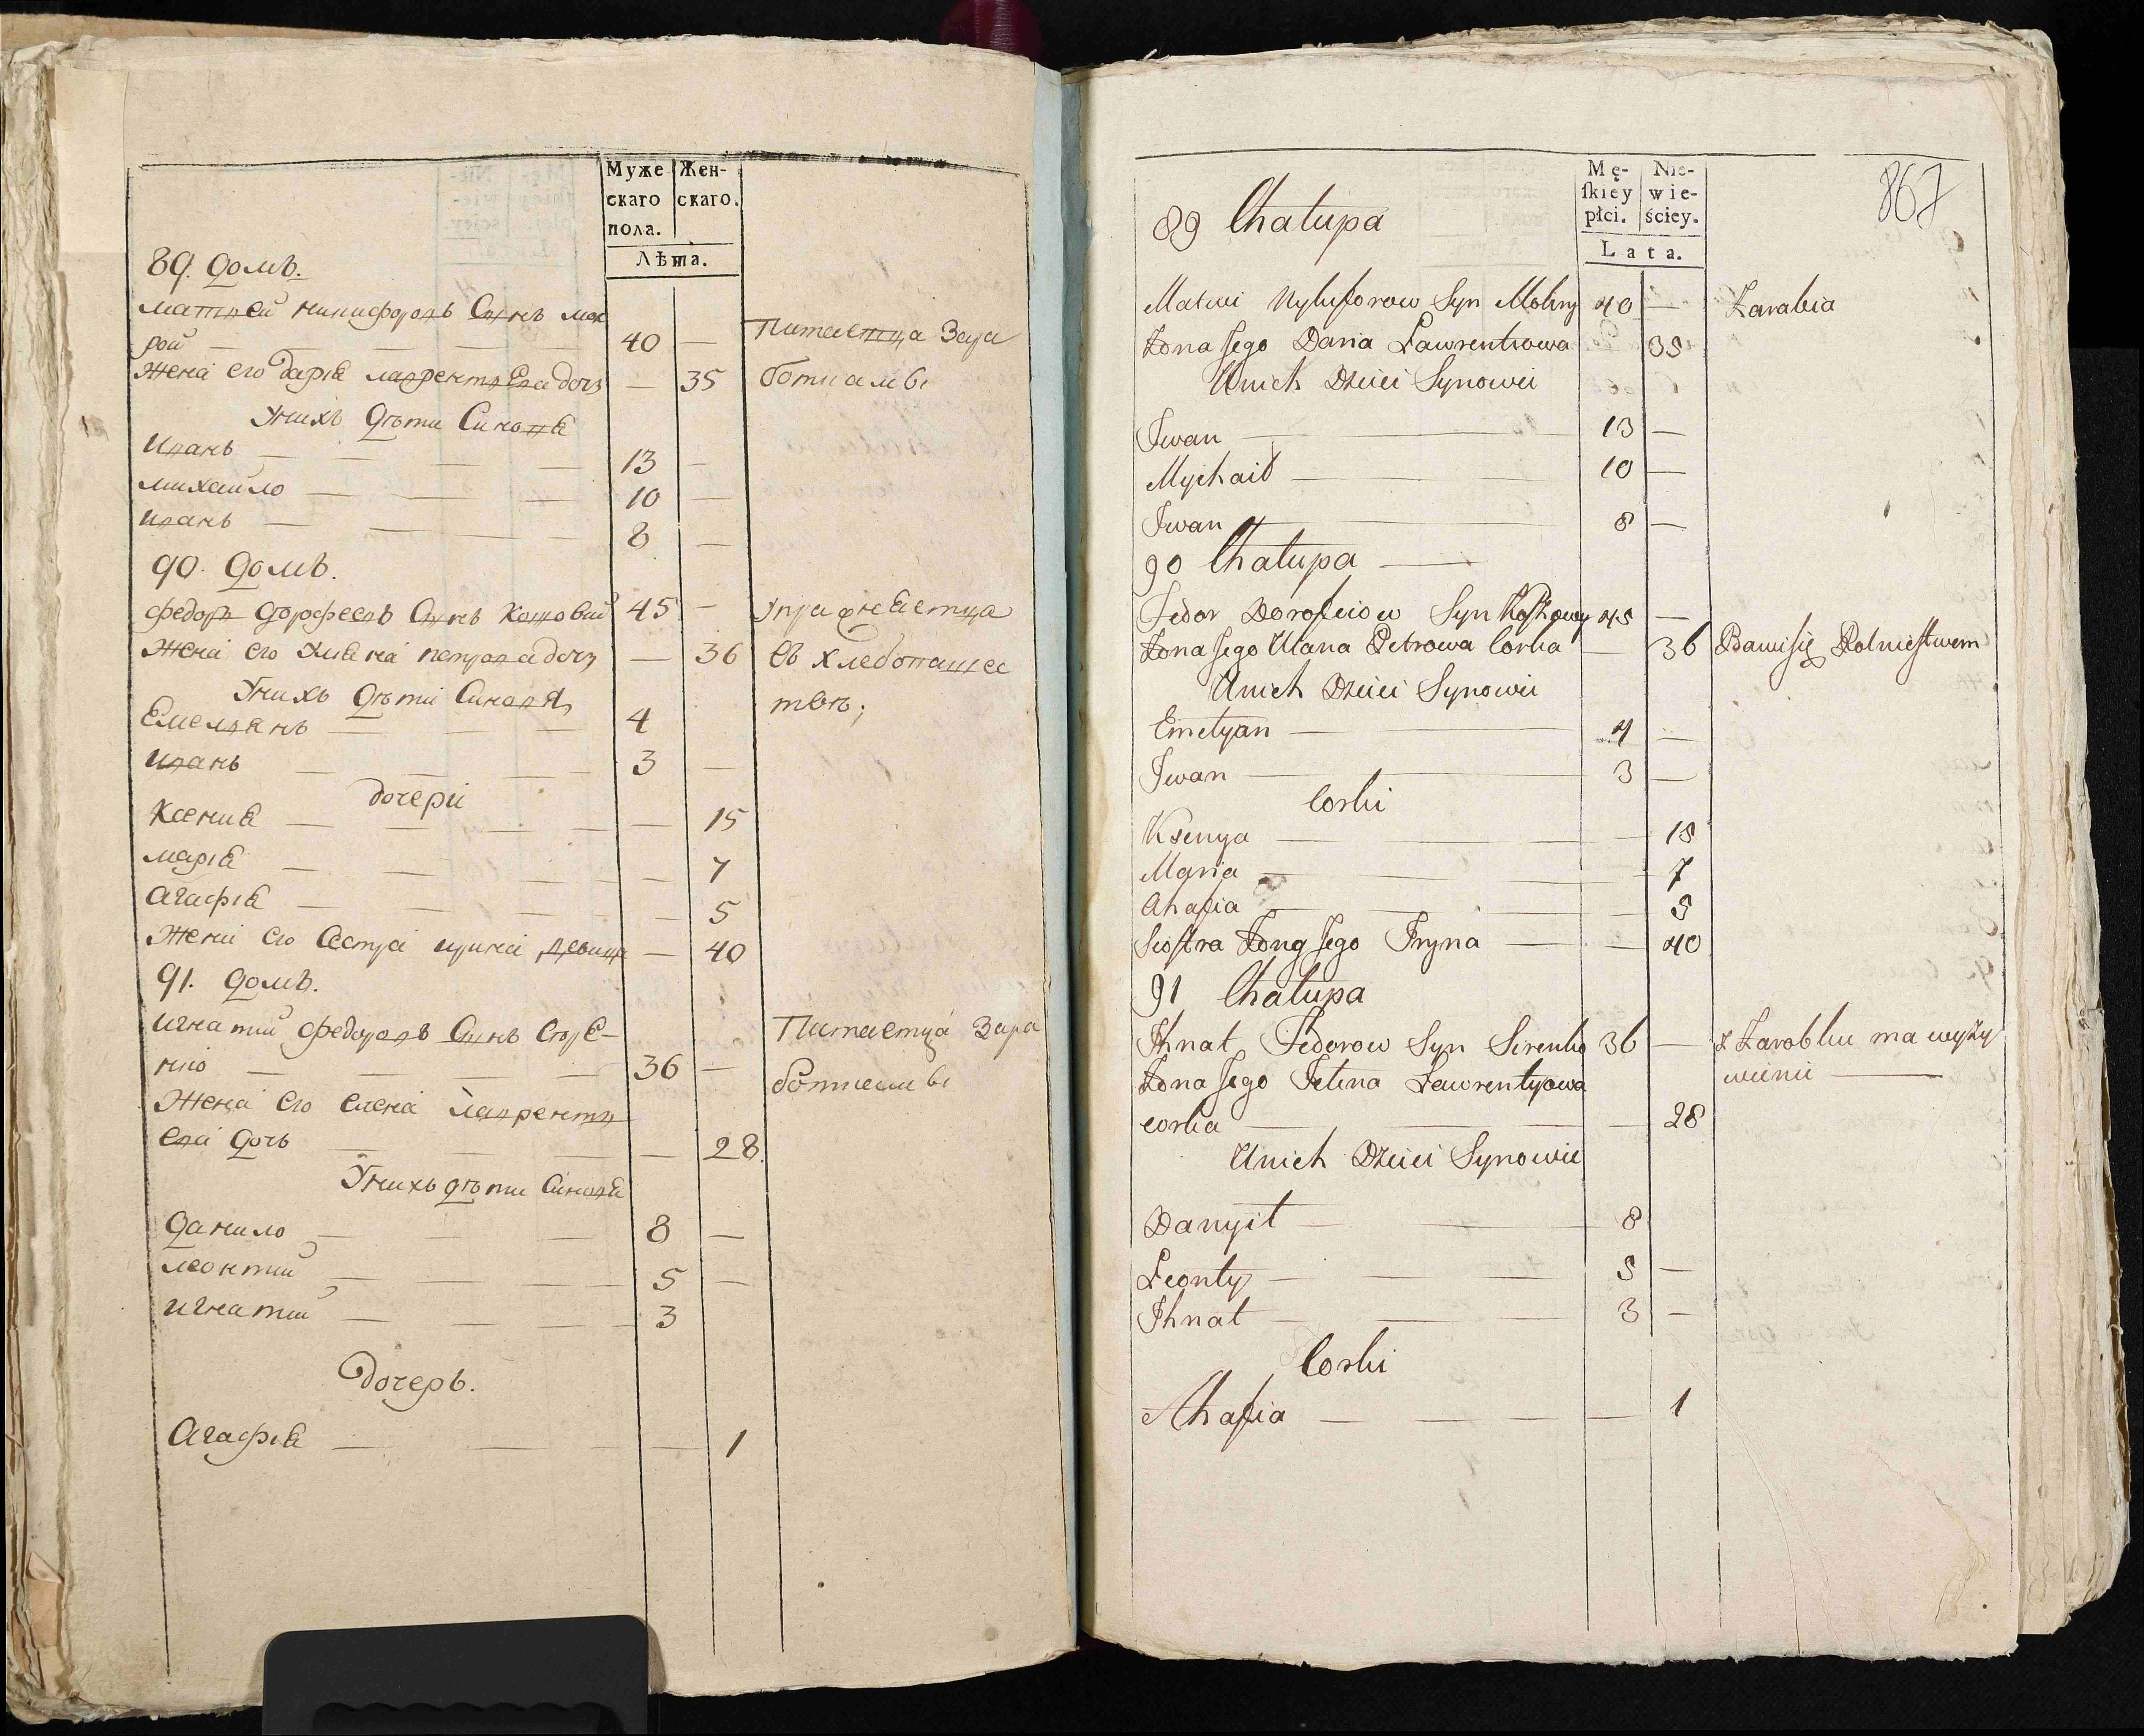 Муже Жен-
скаго скаго.
пола.
Лѣта.
89. домъ.
матвей никифоровъ Сынъ мок
рой 40 — Питаетца Зара
Жена его дария лаврентиева дочь — 35 ботками
Унихъ дѣти Синовя
Иванъ — 13 —
михайло — 10 —
иванъ — 8 —
90. домъ.
федоръ дорофеевъ Сынъ 45 — упражняетца
Жена его Улиана петрова дочь — 36 въ хлебопашес
Унихъ дѣти Синовя твѣ;
Емелянъ — 4
иванъ — 3 —
дочери
Ксения — 15
мария — 7
Агафия — 5
Жени его Сестра ирина девица — 40
91. домъ.
игнатий федоровъ Сынъ Сире- Питаетца Зара
нко — 36 — ботками
Жена его елена лавренти
ева дочь — 28.
Унихъ дѣти Синовя
данило — 8 —
леонтий — 5 —
игнатий — 3
дочерь.
Агафия — 1
867
Mę- Nie-
skiey wie-
płci. ściey.
Lata.
89 Chałupa
Matwi Nykyforow Syn Mokry 40 — Zarabia
Żona Jego Daria Ławrentiowa 35
Unich Dzieci Synowie
Jwan — 13 —
Mychaił — 10 —
Jwan — 8 —
90 Chałupa —
Fedor Dorofeiow Syn 45 —
Żona Jego Ulana Petrowa Corka — 36 Bawi się Rolnictwem
Unich Dzieci Synowie
Emelyan — 4 —
Jwan — 3 —
Corki
Ksenya — 15
Maria — 7
Ahafia — 5
Siostra Żony Jego Jryna — 40
91 Chałupa
Jhnat Fedorow Syn Sirenko 36 — z Zarobku ma wyży
Żona Jego Ławrentyowa wienie —
corka — 28
Unich Dzieci Synowie
Danyił — 8
Leonty — 5 —
Jhnat — 3 —
Corki
Ahafia — 1